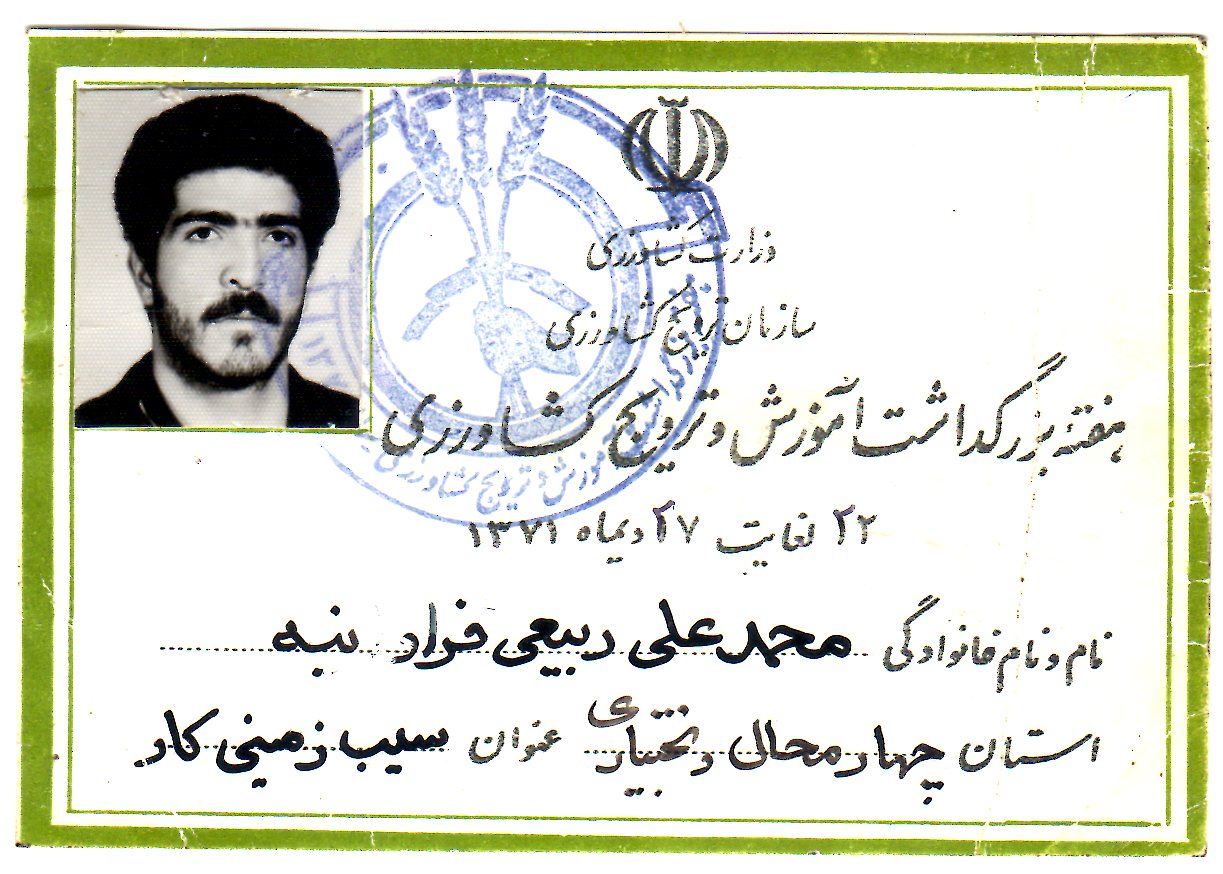 وزارت کشاورزی
سازمان ترویج کشاورزی
هفتهٔ بزرگداشت آموزش و ترویج کشاورزی
۲۲ لغایت ۲۷ دیماه ۱۳۷۱
نام و نام خانوادگی محمد علی ربیعی فراد نبه
استان چهار محال و بختیاری عنوان سیب زمینی کار
آموزش و ترویج کشاورزی